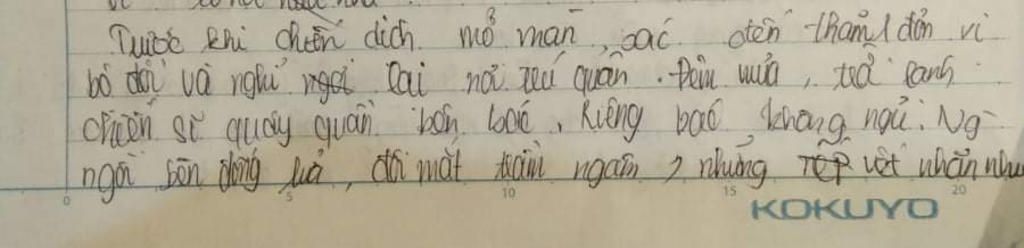 Trước khi chiến dịch mở màn, bác đến thăm 1 đơn vị
bộ đội và nghỉ ngơi lại nơi trú quân. Đêm mưa, trời lạnh
chiến sĩ quây quần bên bác, Riêng bác không ngủ. Ng
ngồi bên đống lửa, đôi mắt trầm ngâm, những vết nhăn như
0 5 10 15 20
KOKUYO